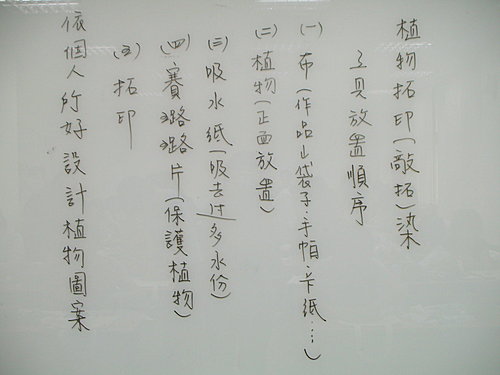 植物拓印(敲拓)染
工具放置順序
(一)布(作品ㄴ袋子.手帕.卡紙...)
(二)植物(正面放置)
(三)吸水紙(吸去过多水份)
(四)賽璐璐片(保護植物)
(五)拓印
依個人所好設計植物圖案